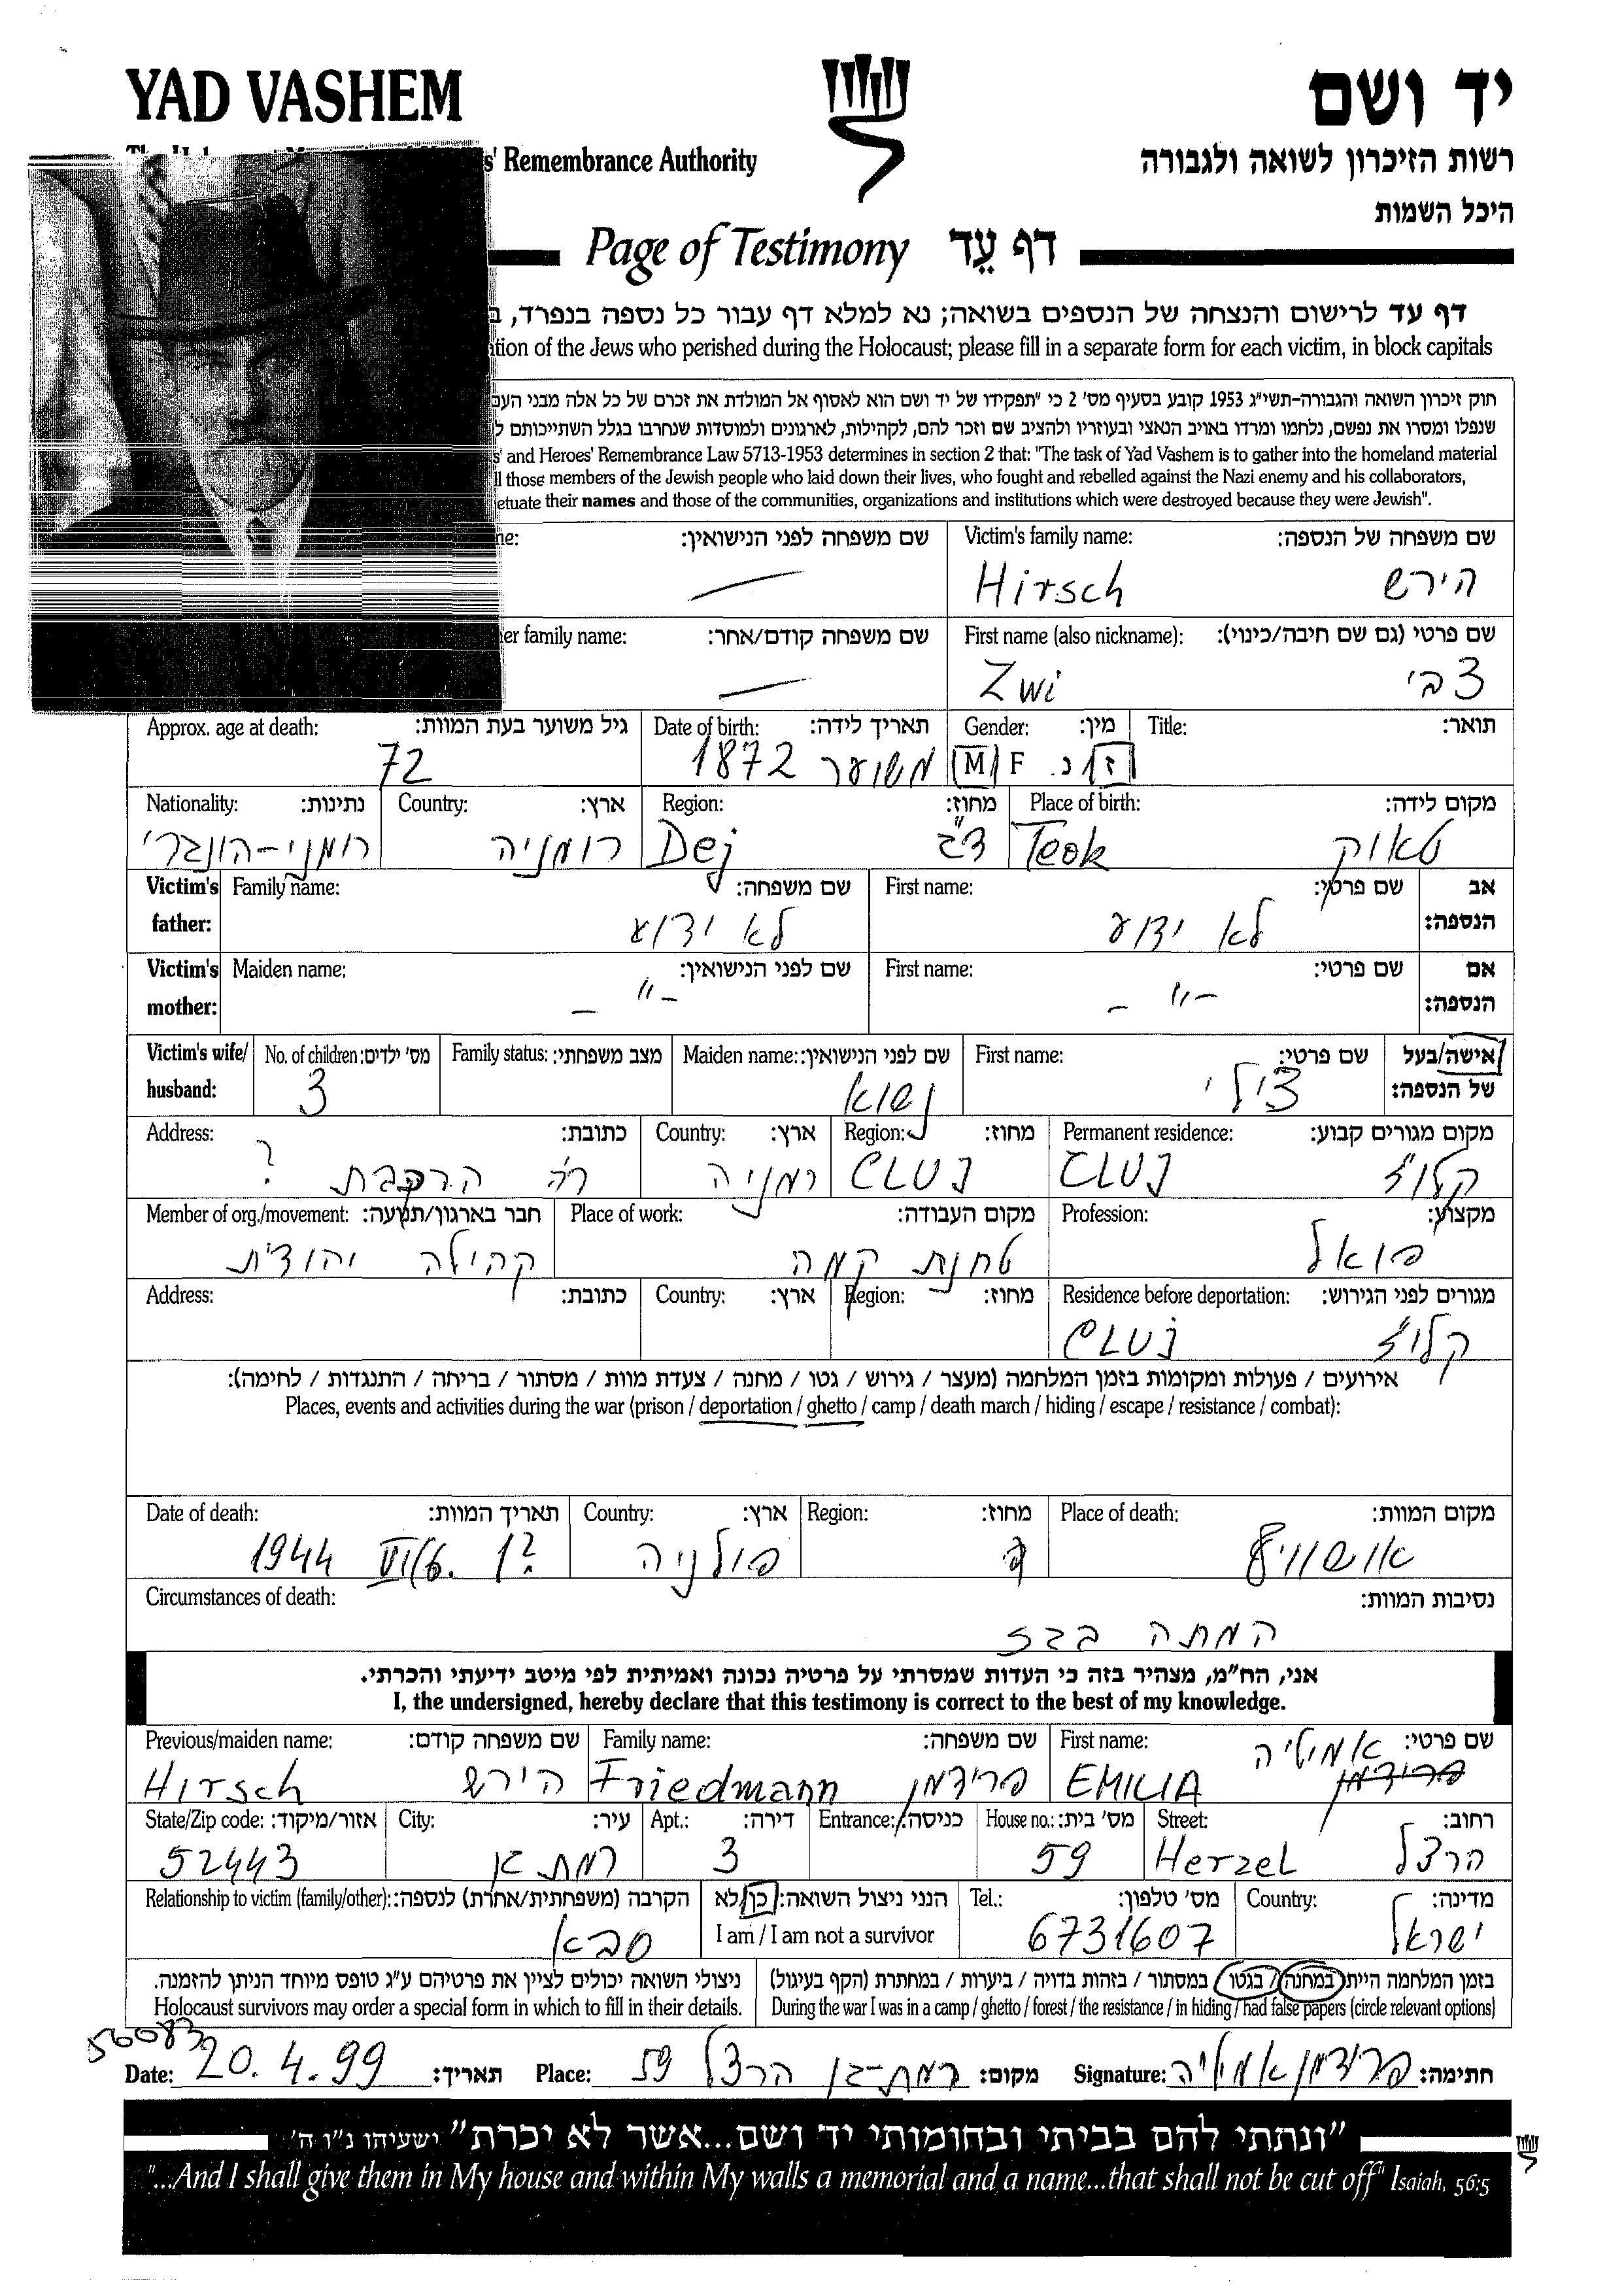 YAD VASHEM
יד ושם
' Remembrance Authority
רשות הזיכרון לשואה ולגבורה
היכל השמות
Page of Testimony דף עֵד
דף עד לרישום והנצחה של הנספים בשואה; נא למלא דף עבור כל נספה בנפרד,
of the Jews who perished during the Holocaust; please fill in a separate form for each victim, in block capitals
חוק זיכרון השואה והגבורה-תשי"ג 1953 קובע בסעיף מס' 2 כי "תפקידו של יד ושם הוא לאסוף אל המולדת את זכרם של כל אלה מבני העם
שנפלו ומסרו את נפשם, נלחמו ומרדו באויב הנאצי ובעוזריו ולהציב שם וזכר להם, לקהילות, לארגונים ולמוסדות שנחרבו בגלל השתייכותם
and Heroes' Remembrance Law 5713-1953 determines in section 2 that: "The task of Yad Vashem is to gather into the homeland material
those members of the Jewish people who laid down their lives, who fought and rebelled against the Nazi enemy and his collaborators,
their names and those of the communities, organizations and institutions which were destroyed because they were Jewish".
שם משפחה לפני הנישואין: Victim's family name: שם משפחה של הנספה:
Hirsch הירש
family name: שם משפחה קודם/אחר: First name (also nickname): שם פרטי (גם שם חיבה/כינוי):
Zwi צבי
Approx. age at death: גיל משוער בעת המוות: Date of birth: תאריך לידה: Gender: מין: Title: תואר:
72 1872 משוער M/F ז/נ.
Nationality: נתינות: Country: ארץ: Region: מחוז: Place of birth: מקום לידה:
רומני-הונגרי רומניה Dej דג' Teok טאוק
Victim's father: Family name: שם משפחה: First name: שם פרטי: אב הנספה:
לא ידוע לא ידוע
Victim's mother: Maiden name: שם לפני הנישואין: First name: שם פרטי: אם הנספה:
-"- -"-
Victim's wife/ husband: No. of children: מס' ילדים: Family status: מצב משפחתי: Maiden name: שם לפני הנישואין: First name: שם פרטי: אישה/בעל של הנספה:
3 נשוא צילי
Address: כתובת: Country: ארץ: Region: מחוז: Permanent residence: מקום מגורים קבוע:
רח' הרכבת ? רמניה CLUJ CLUJ קלוז'
Member of org./movement: חבר בארגון/תנועה: Place of work: מקום העבודה: Profession: מקצוע:
קהילה יהודית טחנת קמח פועל
Address: כתובת: Country: ארץ: Region: מחוז: Residence before deportation: מגורים לפני הגירוש:
CLUJ קלוז'
אירועים / פעולות ומקומות בזמן המלחמה (מעצר / גירוש / גטו / מחנה / צעדת מוות / מסתור / בריחה / התנגדות / לחימה):
Places, events and activities during the war (prison / deportation / ghetto / camp / death march / hiding / escape / resistance / combat):
Date of death: תאריך המוות: Country: ארץ: Region: מחוז: Place of death: מקום המוות:
1944 פולניה אושוויץ
Circumstances of death: נסיבות המוות:
המתה בגז
אני, הח"מ, מצהיר בזה כי העדות שמסרתי על פרטיה נכונה ואמיתית לפי מיטב ידיעתי והכרתי.
I, the undersigned, hereby declare that this testimony is correct to the best of my knowledge.
Previous/maiden name: שם משפחה קודם: Family name: שם משפחה: First name: שם פרטי:
Hirsch הירש Friedmann פרידמן EMILIA אמיליה
State/Zip code: אזור/מיקוד: City: עיר: Apt.: דירה: Entrance: כניסה: House no.: מס' בית: Street: רחוב:
52443 רמת גן 3 59 Herzel הרצל
Relationship to victim (family/other): הקרבה (משפחתית/אחרת) לנספה: הנני ניצול השואה: כן/לא Tel.: מס' טלפון: Country: מדינה:
סבא I am / I am not a survivor 6731607 ישראל
ניצולי השואה יכולים לציין את פרטיהם ע"ג טופס מיוחד הניתן להזמנה. בזמן המלחמה הייתי במחנה / בגטו / במסתור / בזהות בדויה / ביערות / במחתרת (הקף בעיגול)
Holocaust survivors may order a special form in which to fill in their details. During the war I was in a camp / ghetto / forest / the resistance / in hiding / had false papers (circle relevant options)
Date: 20.4.99 תאריך: Place: רמת-גן הרצל 59 מקום: Signature: פרידמן אמיליה חתימה:
"ונתתי להם בביתי ובחומותי יד ושם...אשר לא יכרת" ישעיהו נ"ו ה'
"...And I shall give them in My house and within My walls a memorial and a name...that shall not be cut off" Isaiah, 56:5